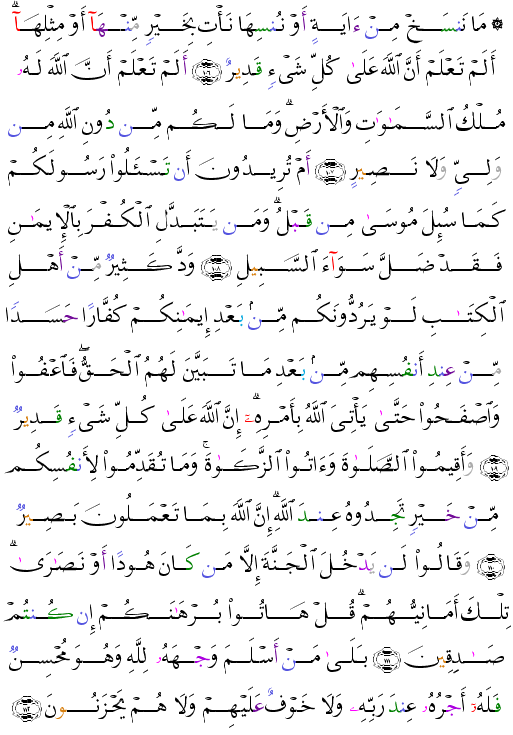 ۞ مَا نَنسَخْ مِنْ ءَايَةٍ أَوْ نُنسِهَا نَأْتِ بِخَيْرٍ مِّنْهَآ أَوْ مِثْلِهَآ ۗ
أَلَمْ تَعْلَمْ أَنَّ ٱللَّهَ عَلَىٰ كُلِّ شَىْءٍ قَدِيرٌ ﴿١٠٦﴾ أَلَمْ تَعْلَمْ أَنَّ ٱللَّهَ لَهُۥ
مُلْكُ ٱلسَّمَـٰوَٰتِ وَٱلْأَرْضِ ۗ وَمَا لَكُم مِّن دُونِ ٱللَّهِ مِن
وَلِىٍّ وَلَا نَصِيرٍ ﴿١٠٧﴾ أَمْ تُرِيدُونَ أَن تَسْـَٔلُوا۟ رَسُولَكُمْ
كَمَا سُئِلَ مُوسَىٰ مِن قَبْلُ ۗ وَمَن يَتَبَدَّلِ ٱلْكُفْرَ بِٱلْإِيمَـٰنِ
فَقَدْ ضَلَّ سَوَآءَ ٱلسَّبِيلِ ﴿١٠٨﴾ وَدَّ كَثِيرٌ مِّنْ أَهْلِ
ٱلْكِتَـٰبِ لَوْ يَرُدُّونَكُم مِّنۢ بَعْدِ إِيمَـٰنِكُمْ كُفَّارًا حَسَدًا
مِّنْ عِندِ أَنفُسِهِم مِّنۢ بَعْدِ مَا تَبَيَّنَ لَهُمُ ٱلْحَقُّ ۖ فَٱعْفُوا۟
وَٱصْفَحُوا۟ حَتَّىٰ يَأْتِىَ ٱللَّهُ بِأَمْرِهِۦٓ ۗ إِنَّ ٱللَّهَ عَلَىٰ كُلِّ شَىْءٍ قَدِيرٌ
﴿١٠٩﴾ وَأَقِيمُوا۟ ٱلصَّلَوٰةَ وَءَاتُوا۟ ٱلزَّكَوٰةَ ۚ وَمَا تُقَدِّمُوا۟ لِأَنفُسِكُم
مِّنْ خَيْرٍ تَجِدُوهُ عِندَ ٱللَّهِ ۗ إِنَّ ٱللَّهَ بِمَا تَعْمَلُونَ بَصِيرٌ
﴿١١٠﴾ وَقَالُوا۟ لَن يَدْخُلَ ٱلْجَنَّةَ إِلَّا مَن كَانَ هُودًا أَوْ نَصَـٰرَىٰ ۗ
تِلْكَ أَمَانِيُّهُمْ ۗ قُلْ هَاتُوا۟ بُرْهَـٰنَكُمْ إِن كُنتُمْ
صَـٰدِقِينَ ﴿١١١﴾ بَلَىٰ مَنْ أَسْلَمَ وَجْهَهُۥ لِلَّهِ وَهُوَ مُحْسِنٌ
فَلَهُۥٓ أَجْرُهُۥ عِندَ رَبِّهِۦ وَلَا خَوْفٌ عَلَيْهِمْ وَلَا هُمْ يَحْزَنُونَ ﴿١١٢﴾